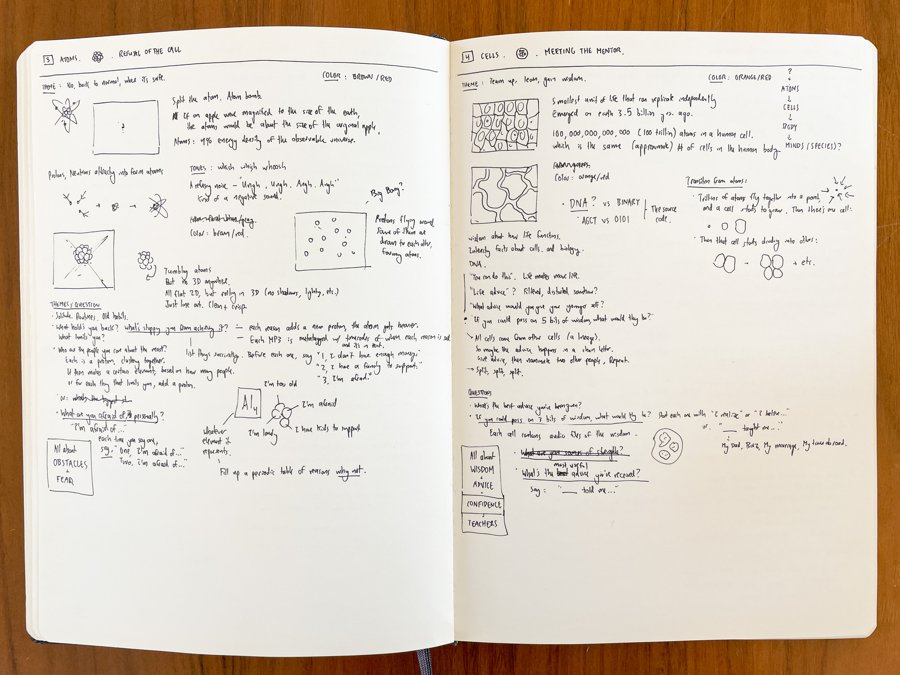 3 ATOMS. . REFUSAL OF THE CALL
THEME: No, back to normal, where it's safe.
COLOR: BROWN/RED
Split the atom. Atom bomb.
If an apple were magnified to the size of the earth,
the atoms would be about the size of the original apple.
Atoms: 4% energy density of the observable universe.
Protons, Neutrons attracting into form atoms.
TONES: which which whoosh
A refusing noise - "Urrgh, Urrgh, Aargh, Aargh"
Kind of a negative sound.
Color: brown/red.
Big Bang?
Protons flying around
Some of them are
drawn to each other,
forming atoms.
Tumbling atoms
But in 3D anymore
All flat 2D, but rolling in 3D (no shadows, lighting, etc.)
Just line art. Clean + crisp
THEMES/QUESTION
Solitude. Routines. Old habits.
What holds you back? What's stopping you from achieving it?
What limits you?
each reason adds a new proton, the atom gets heavier.
Each MP3 is metatagged w/ timecodes of when each reason is said
and it's in text.
list things succinctly. Before each one, say "1, I don't have enough money,
"2, I have a family to support."
"3, I'm afraid."
Who are the people you care about the most?
Each is a proton, clustering together.
It then makes a certain element, based on how many people.
or for each thing that limits you, add a proton.
or:
What are you afraid of, personally?
"I'm afraid of..."
each time you say one,
say, "One, I'm afraid of..."
Two, I'm afraid of..."
All about
OBSTACLES
+
FEAR
Al4
whatever
element it
represents.
I'm too old
I'm afraid
I'm lonely
I have kids to support
Fill up a periodic table of reasons why not.
4 CELLS. . MEETING THE MENTOR.
THEME: Team up, team, gain wisdom.
COLOR: ORANGE/RED
?
ATOMS
CELLS
BODY
MINDS (SPECIES)?
Smallest unit of life that can replicate independently
Emerged on earth 3.5 billion yrs. ago.
100,000,000,000,000 (100 trillion) atoms in a human cell.
which is the same (approximate) # of cells in the human body.
Color: orange/red
DNA? vs BINARY
AGCT vs 0101
The source
code.
Transition from atoms:
Trillions of atoms fly together into a point,
and a cell starts to grow. Then there's one cell:
Then that cell starts dividing into others:
etc.
wisdom about how life functions.
Interesting facts about cells, and biology.
DNA.
"You can do this". Life makes more life.
"Life advice"? Filtered, distorted somehow?
"What advice would you give your younger self?
"If you could pass on 5 bits of wisdom, what would they be?"
All cells come from other cells (a lineage).
So maybe the advice happens in a chain letter.
Give advice, then nominate two other people, Repeat.
Split, split, split.
QUESTIONS
What's the best advice you've been given?
If you could pass on 3 bits of wisdom, what would they be? Start each one with "I realize" or "I believe..."
or. "___ taught me...:"
My dad, Buzz, My marriage, My time abroad.
Each cell contains audio files of the wisdom.
What are your sources of strength?
most useful
What's the best advice you've received?
say: "___ told me..."
All about
WISDOM
+
ADVICE
CONFIDENCE
+
TEACHERS